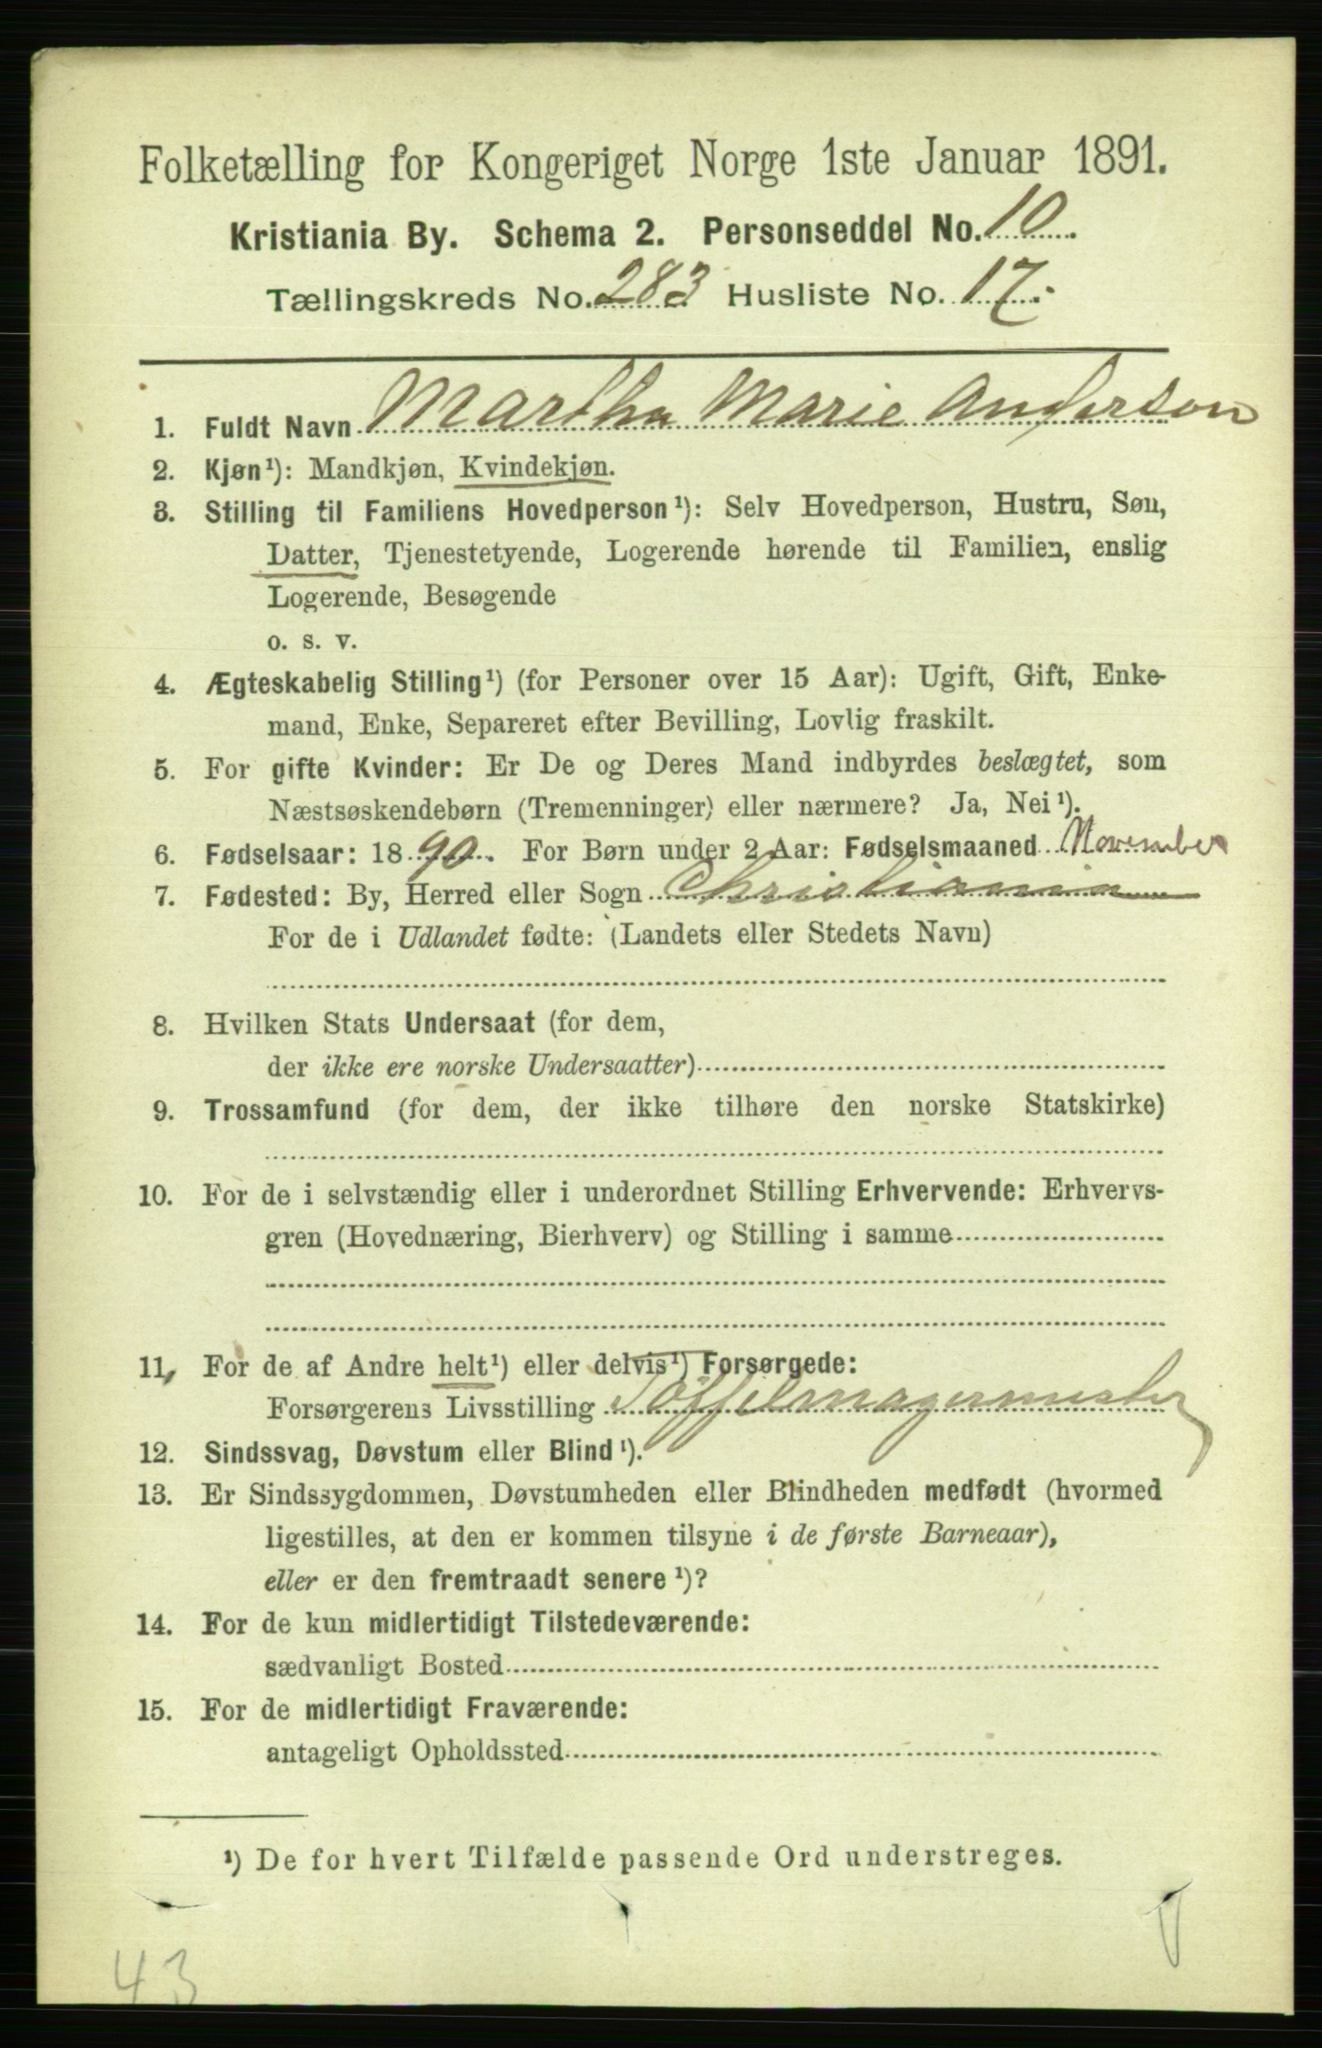 Folketælling for Kongeriget Norge 1ste Januar 1891.
Kristiania By. Schema 2. Personseddel No. 10
Tællingskreds No. 283 Husliste No. 17.
1. Fuldt Navn Martha Marie Anderson
2. Kjøn¹): Mandkjøn, Kvindekjøn.
3. Stilling til Familiens Hovedperson¹): Selv Hovedperson, Hustru, Søn,
Datter, Tjenestetyende, Logerende hørende til Familien, enslig
Logerende, Besøgende
o. s. v.
4. Ægteskabelig Stilling¹) (for Personer over 15 Aar): Ugift, Gift, Enke-
mand, Enke, Separeret efter Bevilling, Lovlig fraskilt.
5. For gifte Kvinder: Er De og Deres Mand indbyrdes beslægtet, som
Næstsøskendebørn (Tremenninger) eller nærmere? Ja, Nei¹).
6. Fødselsaar: 1890. For Børn under 2 Aar: Fødselsmaaned November
7. Fødested: By, Herred eller Sogn Christiania
For de i Udlandet fødte: (Landets eller Stedets Navn)
8. Hvilken Stats Undersaat (for dem,
der ikke ere norske Undersaatter)
9. Trossamfund (for dem, der ikke tilhøre den norske Statskirke)
10. For de i selvstændig eller i underordnet Stilling Erhvervende: Erhvervs-
gren (Hovednæring, Bierhverv) og Stilling i samme
11. For de af Andre helt¹) eller delvis¹) Forsørgede:
Forsørgerens Livsstilling Töffelmagermester
12. Sindssvag, Døvstum eller Blind¹).
13. Er Sindssygdommen, Døvstumheden eller Blindheden medfødt (hvormed
ligestilles, at den er kommen tilsyne i de første Barneaar),
eller er den fremtraadt senere¹)?
14. For de kun midlertidigt Tilstedeværende:
sædvanligt Bosted
15. For de midlertidigt Fraværende:
antageligt Opholdssted
¹) De for hvert Tilfælde passende Ord understreges.
43